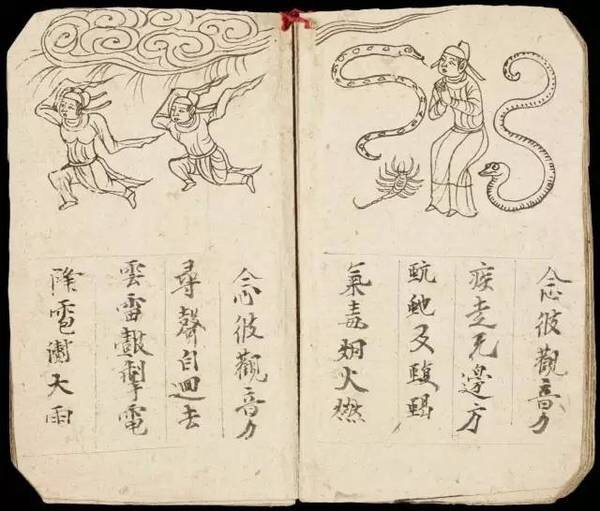 念彼觀音力
疾走无邊方
蚖虵及蝮蝎
氣毒烟火燃
念彼觀音力
尋聲自迴去
雲雷鼓掣電
降雹澍大雨